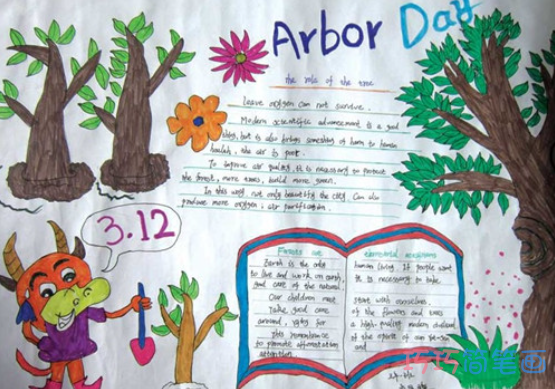 Arbor Day
the role of the tree
Leave oxygen can not survive.
Modern scientific advancement is a good
thing, but it also brings something of harm to human
health, the air is
To improve air quality, it is necessary to protect
the forest, more trees, build more green.
In this way, not only beautify the city. Can also
produce more oxygen, air purification.
3.12
Forests are
Earth is the only
to live and work on earth,
good care of the natural
Our children must
Take good care
around, for
this remembrance
to promote afforestation
attention
human living. If people want
it is necessary to take
start with ourselves
of the flowers and trees
a high-quality modern
of the spirit of
and
巧巧简笔画